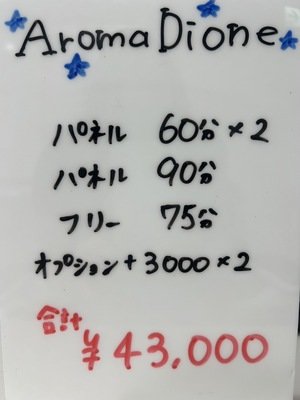 Aroma Dione
パネル 60分×2
パネル 90分
フリー 75分
オプション+3000×2
合計
¥43,000